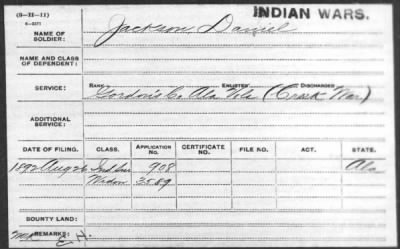 (3-II-11)
6-3371
INDIAN WARS.
NAME OF SOLDIER: Jackson, Daniel
NAME AND CLASS OF DEPENDENT:
SERVICE: RANK ENLISTED DISCHARGED
Gordon's Co. Ala Vols (Creek War)
ADDITIONAL SERVICE:
DATE OF FILING. CLASS. APPLICATION NO. CERTIFICATE NO. FILE NO. ACT. STATE.
1892 Aug 26 Ind Sur 908 Ala
Widow 3589
BOUNTY LAND:
REMARKS: